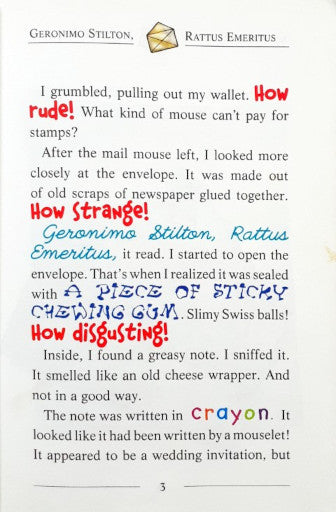 GERONIMO STILTON, RATTUS EMERITUS
I grumbled, pulling out my wallet. How
rude! What kind of mouse can't pay for
stamps?
After the mail mouse left, I looked more
closely at the envelope. It was made out
of old scraps of newspaper glued together.
How strange!
Geronimo Stilton, Rattus
Emeritus, it read. I started to open the
envelope. That's when I realized it was sealed
with A PIECE OF STICKY
CHEWING GUM. Slimy Swiss balls!
How disgusting!
Inside, I found a greasy note. I sniffed it.
It smelled like an old cheese wrapper. And
not in a good way.
The note was written in crayon. It
looked like it had been written by a mouselet!
It appeared to be a wedding invitation, but
3